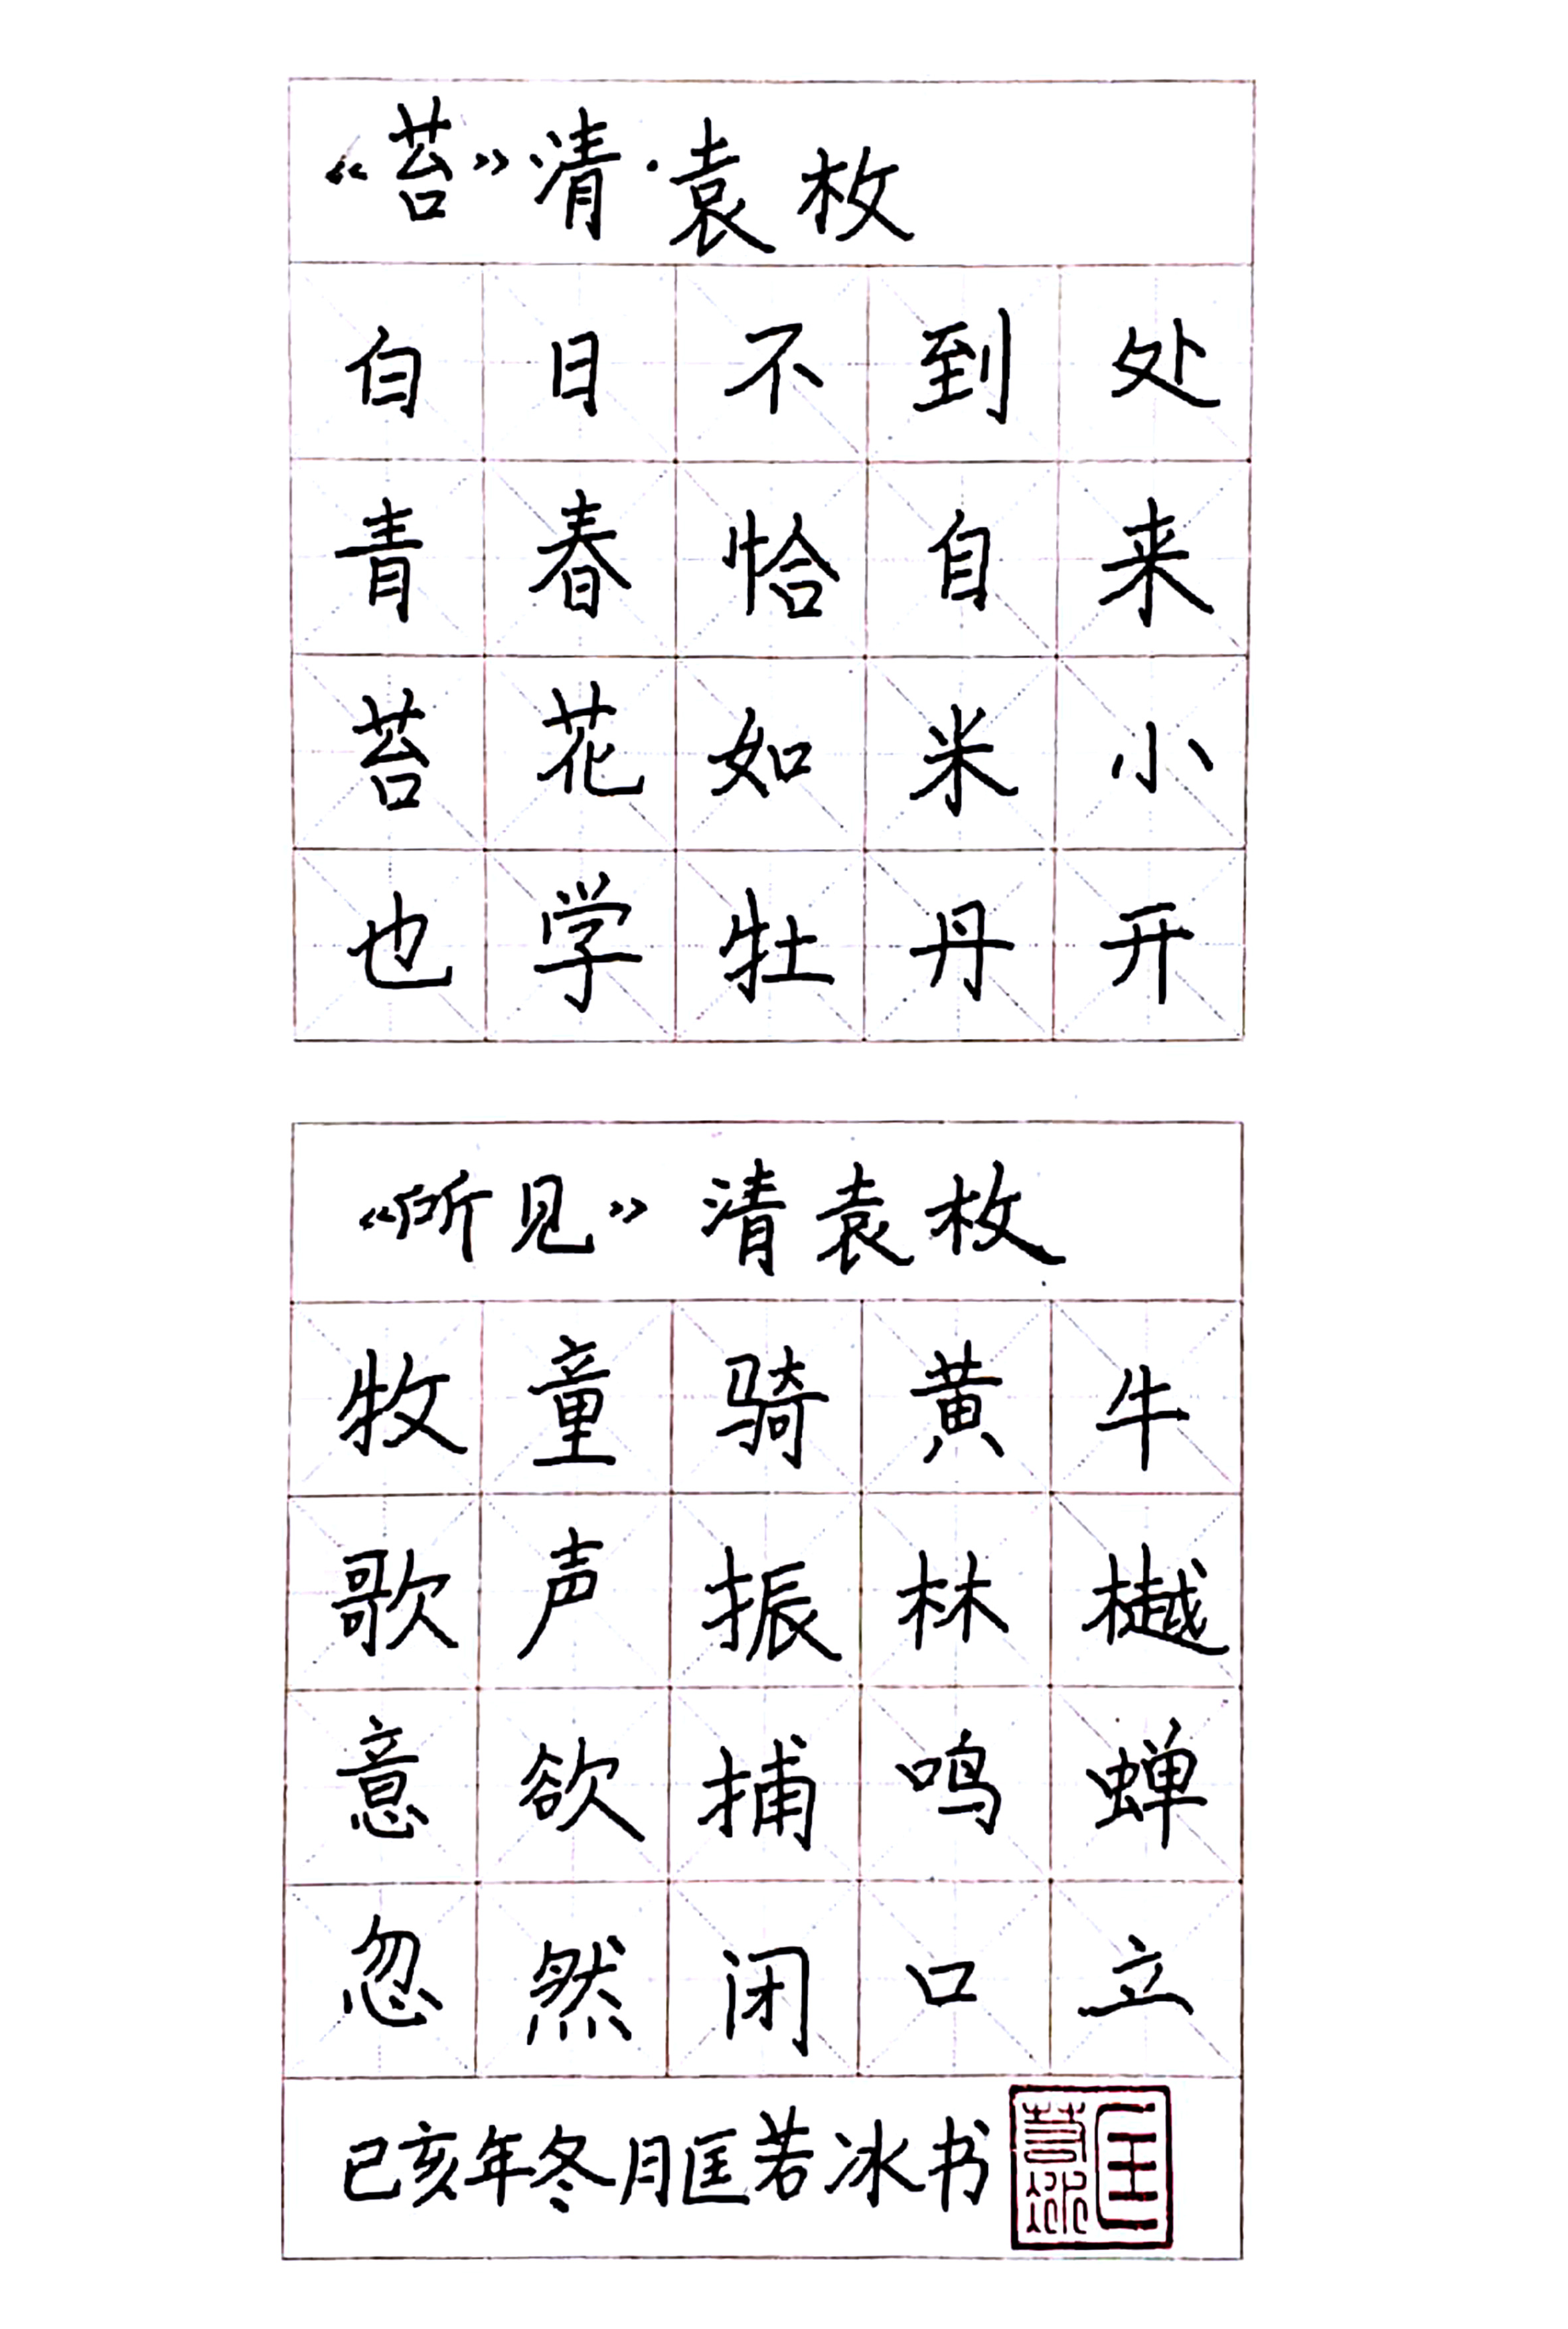 《苔》清·袁枚
白日不到处
青春恰自来
苔花如米小
也学牡丹开
《所见》清袁枚
牧童骑黄牛
歌声振林樾
意欲捕鸣蝉
忽然闭口立
己亥年冬月匡若冰书
匡若冰